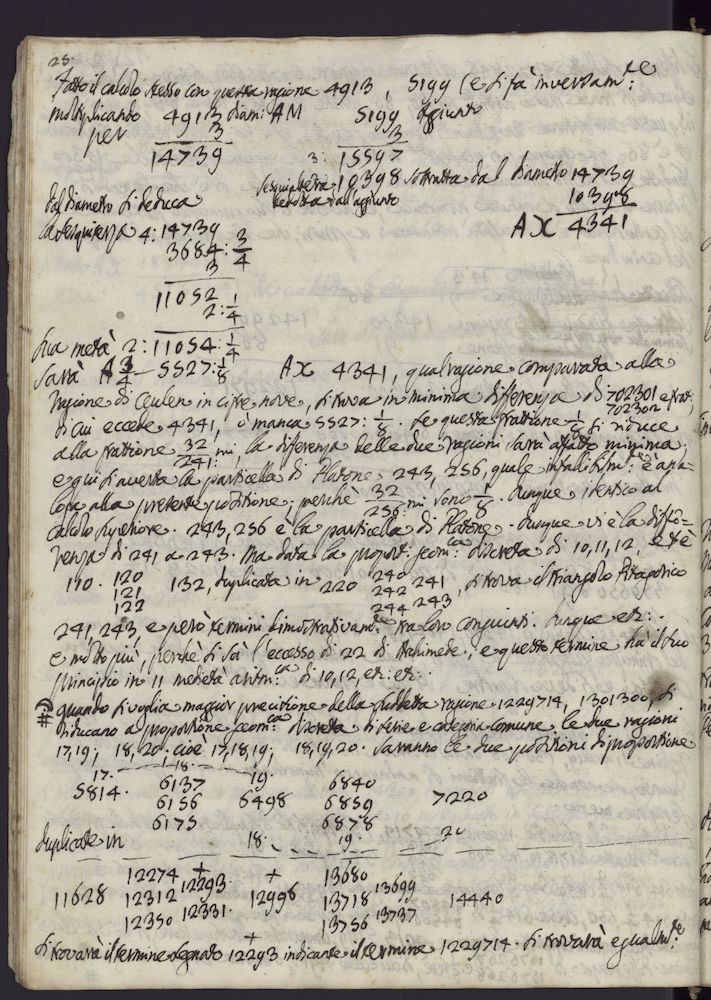 23.
Fatto il calcolo stesso con questa ragione 4913, 5199 (e si fà inversam.te:
moltiplicando 4913 diam: AM 5199 aggiunto
per 3 3
14739 3: 15597
Sesquialtera 10398 sottratta dal diametro 14739
dal diametro si deduca 10398
la sesquiterza 4: 14739 AX 4341
3684: 3/4
3
11052
2: 1/4
sua metà 2: 11054: 1/4
Sarà 5527: 1/8 AX 4341, qual ragione comparata alla
ragione di Ceulen in cifre nove, si trova in minima differenza di 702301
702302
di cui eccede 4341, o manca 5527: 1/8. Se questa frattione 1/8 si riduce
alla frattione 32/241: mi, la differenza delle due ragioni sarà affatto minima;
e qui si averta la particella di Platone 243, 256, quale è
alla presente positione; perchè 32/256: mi sono 1/8. dunque identico al
calcolo superiore. 243, 256 è la particella di Platone. dunque vi è la diffe=
renza di 241 a 243. Ma data la proport: geom:ca discreta di 10, 11, 12, ed è
110. 120 132, duplicata in 220 240 241, si trova il triangolo Pitagorico
121 242 243
122 244
241, 243, e però termini dimostrativam.te tra loro congiunti. dunque etc:
e molto più, perchè si sà l'eccesso di 22 di Archimede, e questo termine hà il suo
principio in 11 medietà aritm:ca di 10, 12, etc: etc.
#:) quando si voglia maggior precisione della suddetta ragione 1229714, 1301300, si
riducano a proportione geom:ca discreta di serie e categoria comune le due ragioni
17, 19; 18, 20. cioè 17, 18, 19; 18, 19, 20. Saranno le due positioni di proportione
17. 18. 19.
5814. 6137 6498 6840 7220
6156 6859
6175 6878
duplicate in 18. 19. 20
11628 12274 + 12293. + 12996 13680 13699 14440
12312 12331. 13718 13737
12350 13756
+
si trovarà il termine segnato 12293 indicante il termine 1229714. si trovarà egualm.te: